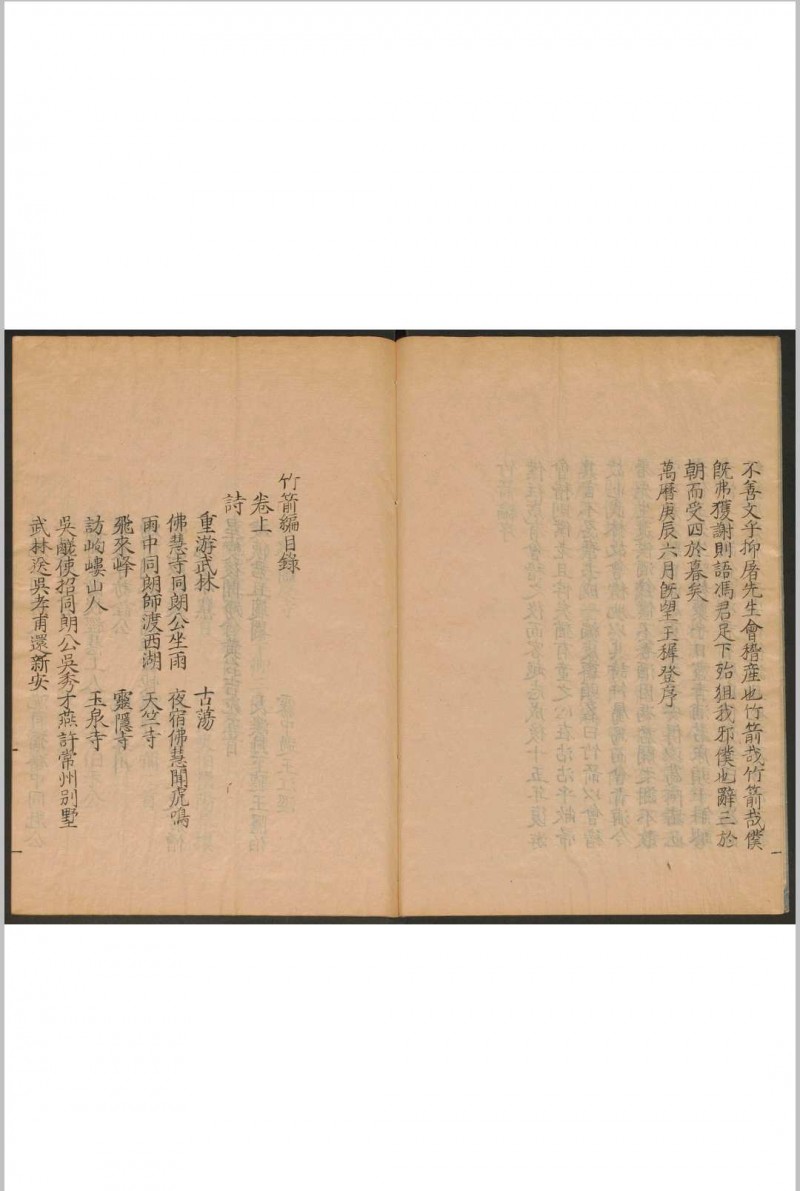 不善文乎抑屠先生會稽産也竹箭哉竹箭哉僕
既弗獲謝則語馮君足下殆狙我邪僕也辭三於
朝而受四於暮矣
萬曆庚辰六月既望王穉登序
竹箭編目錄
卷上
詩
重游武林 古蕩
佛慧寺同朗公坐雨 夜宿佛慧聞虎鳴
雨中同朗師渡西湖 天竺寺
飛來峰 靈隱寺
訪岣嶁山人 玉泉寺
吳醝使招同朗公吳秀才燕許常州別墅
武林送吳孝甫還新安